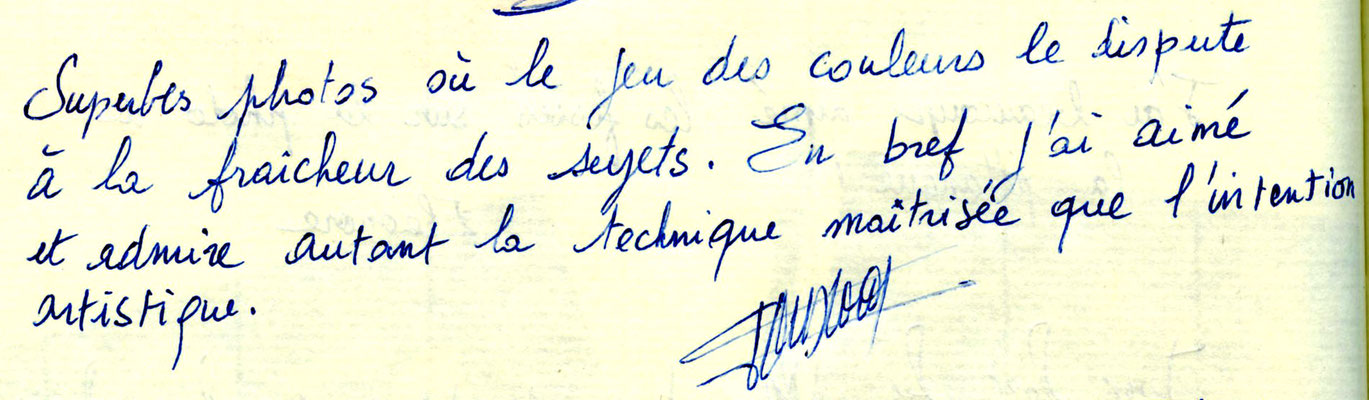 Superbes photos où le jeu des couleurs le dispute
à la fraicheur des sujets. En bref j'ai aimé
et admire autant la technique maîtrisée que l'intention
artistique.